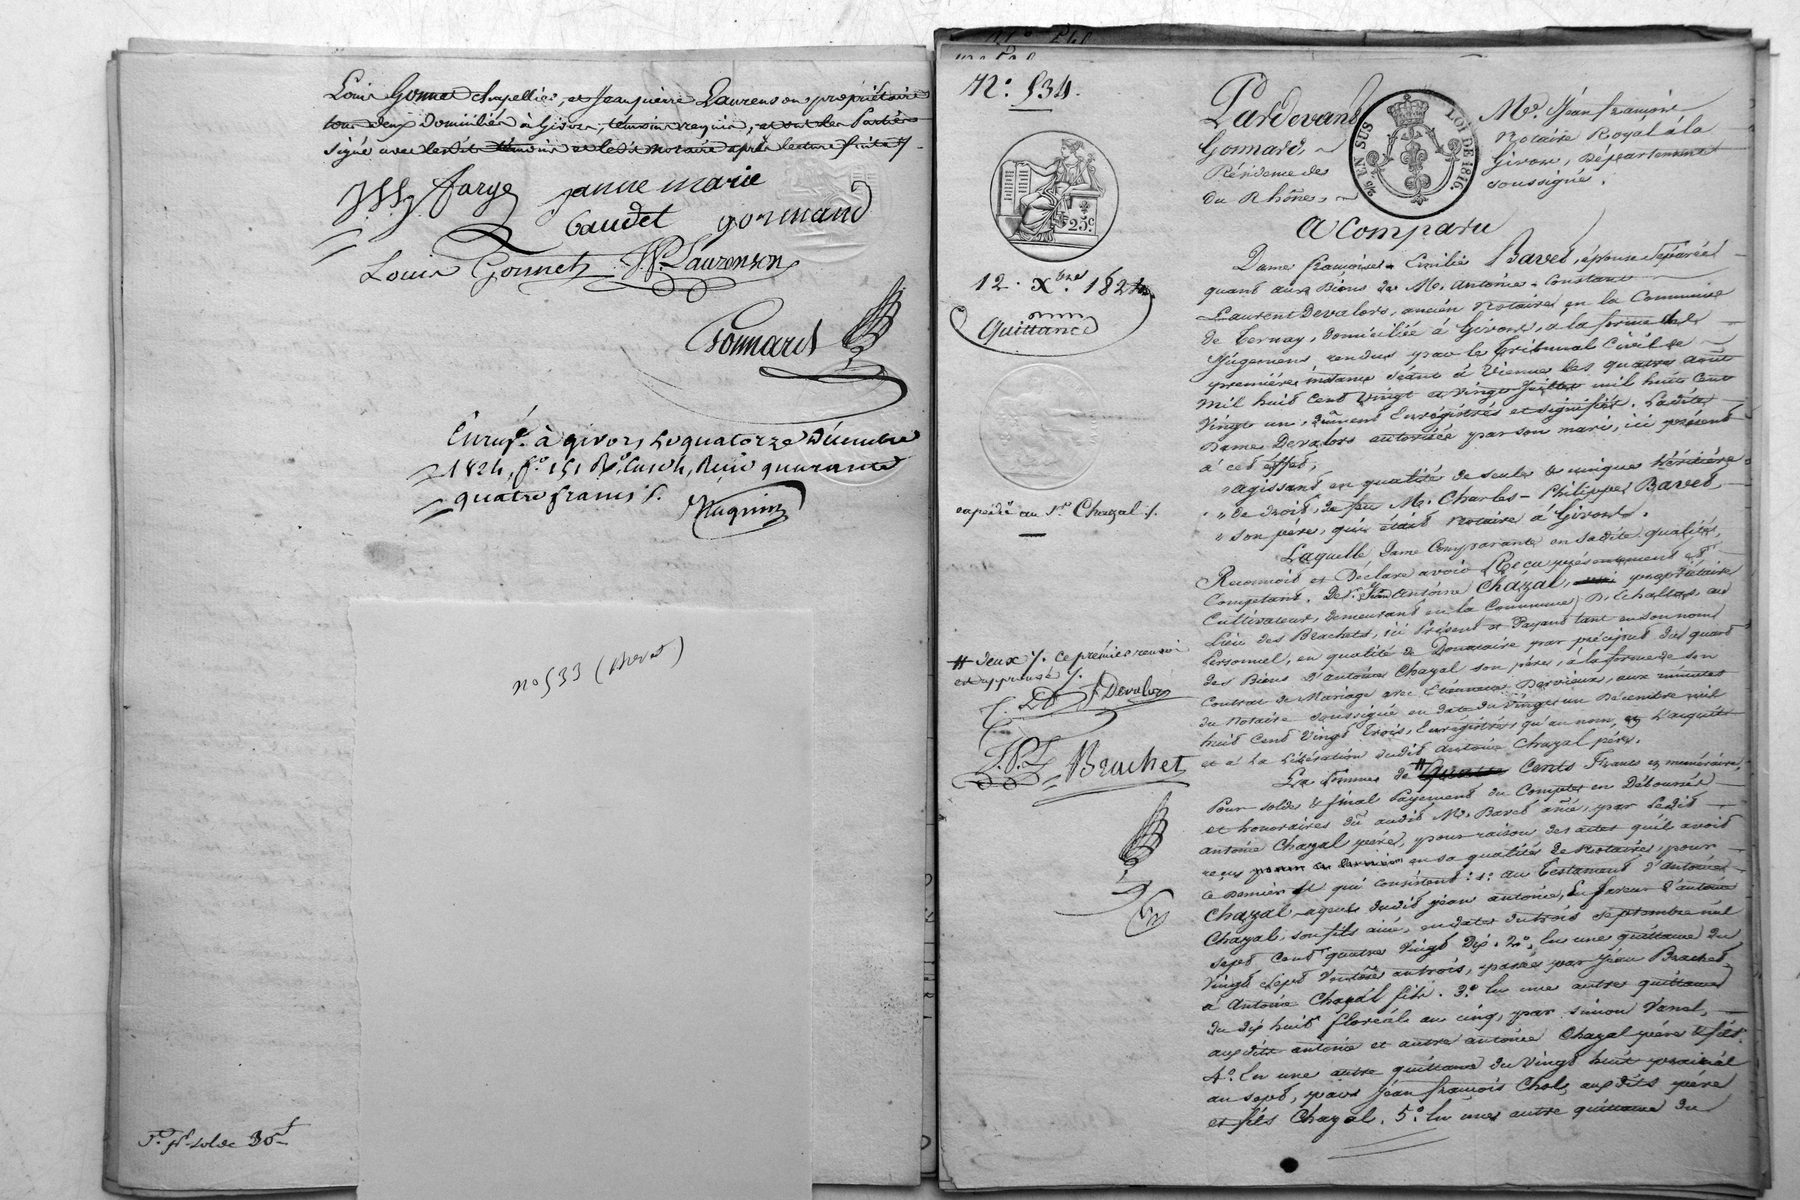 Louis Gonnet chapellier, et Jean pierre Laurenson, propriétaire
tous deux Domiciliés à Givors, témoins requis, et ont les Parties
signé avec lesdits témoins et ledit notaire après lecture faite
Farge
janne marie
Gaudet gormand
Louis Gonnet J.P. Laurenson
Gonnard
Enregt. à givors, le quatorze Décembre
1824, fo. 151 Ro. Case 4, Reçu quarante
quatre francs
no 533 (
30
No. 534.
25c
12. Xbre 1824
Quittance
expédié au Sr. Chazal
# deux /. ce premier renvoi
est approuvé /.
Devalors
Brachet
EN SUS
LOI DE 1816
Pardevant Me. Jean françois
Gonnard, Notaire Royal à la
Résidence de Givors, Département
du Rhône, soussigné.
A Comparu
Dame françoise Emilie Bavet, épouse séparée
quant aux Biens de Me. Antoine Constant
Laurent Devalors, ancien Notaire, en la Commune
de Ternay, domiciliée à Givors, à la forme de
Jugemens rendus par le Tribunal Civil de
première instance séant à Vienne les quatre août
mil huit Cent Vingt et vingt Juillet mil huit Cent
Vingt un, dûment Enregistrés et signifiés. Ladite
Dame Devalors autorisée par son mari, ici présent
à cet effet,
"agissant en qualité de seule & unique héritière
" de droit, de feu Me. Charles-Philippe Bavet
" son père, qui était Notaire à Givors.
Laquelle Dame Comparante en sadite qualité,
Reconnoit et Déclare avoir Reçu présentement et
Comptant. de Sr. Jean Antoine Chazal, propriétaire
Cultivateur, demeurant en la Commune D'Echallas au
Lieu des Brachets, ici Présent et Payant tant en son nom
Personnel, en qualité de Donataire par préciput du quart
des Biens d'Antoine Chazal son père, à la forme de son
Contrat de Mariage avec Etiennette Dervieux, aux minutes
du Notaire soussigné en date du Vingt un Décembre mil
huit Cent Vingt trois, Enregistré, qu'au nom, en L'acquit
et à La Libération dudit Antoine Chazal père.
La Somme de # Cents Francs en numéraire,
Pour solde & final Payement du Compte en Déboursé
et honoraires dû audit Me. Bavet ainé, par Ledit
antoine Chazal père, pour raison des actes qu'il avoit
reçus en sa qualité de Notaire, pour
ce Dernier et qui consistent: 1o. au Testament d'antoine
Chazal, ayeul dudit jean antoine, En faveur d'antoine
Chazal, son fils ainé, en date du trois septembre mil
sept Cent quatre Vingt Dix. 2o. En une quittance du
Vingt sept Ventose an trois, passée par Jean Brachet
à Antoine Chazal fils. 3o. En une autre quittance
du dix huit floréal an cinq, par simon Vanel,
auxdits antoine et autre antoine Chazal père & fils.
4o. En une autre quittance du Vingt huit prairial
an sept, par Jean françois Chol, auxdits père
et fils Chazal. 5o. En une autre quittance du